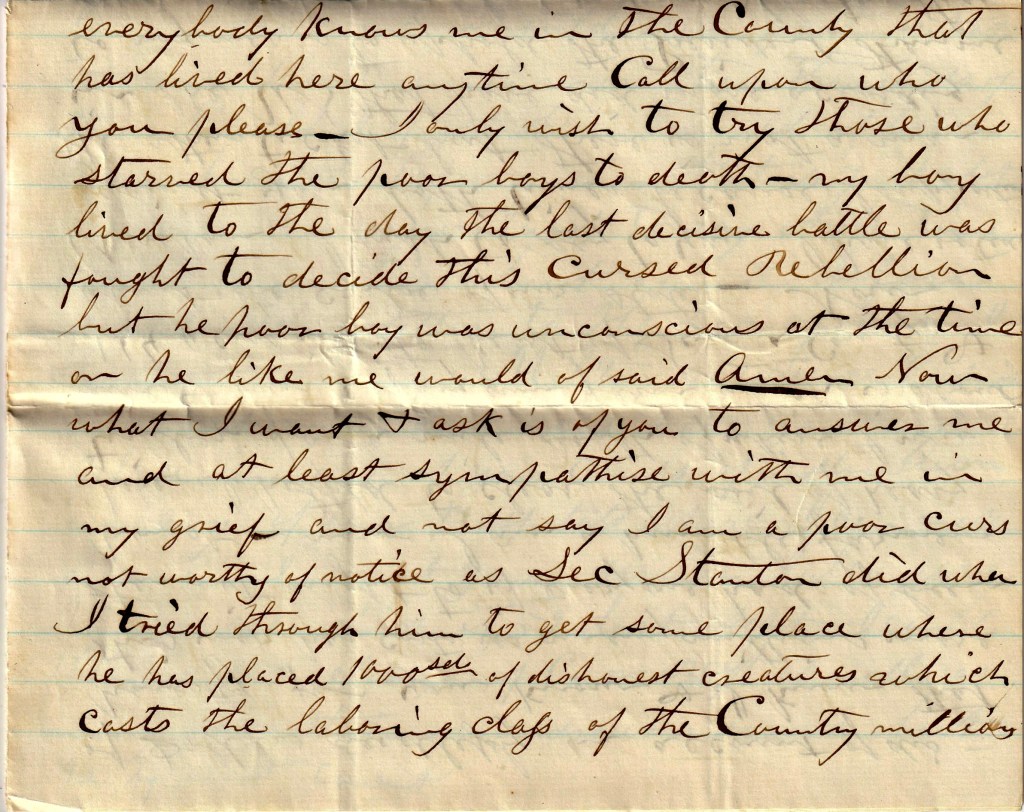 everybody knows me in the County that
has lived here anytime Call upon who
you please – I only wish to try those who
starved the poor boys to death – my boy
lived to the day the last decisive battle was
fought to decide this cursed Rebellion
but he poor boy was unconscious at the time
or he like me would of said Amen Now
what I want & ask is of you to answer me
and at least sympathise with me in
my grief and not say I am a poor curs
not worthy of notice as Sec Stanton did when
I tried through him to get some place where
he has placed 1000sd of dishonest creatures which
costs the laboring class of the Country millions